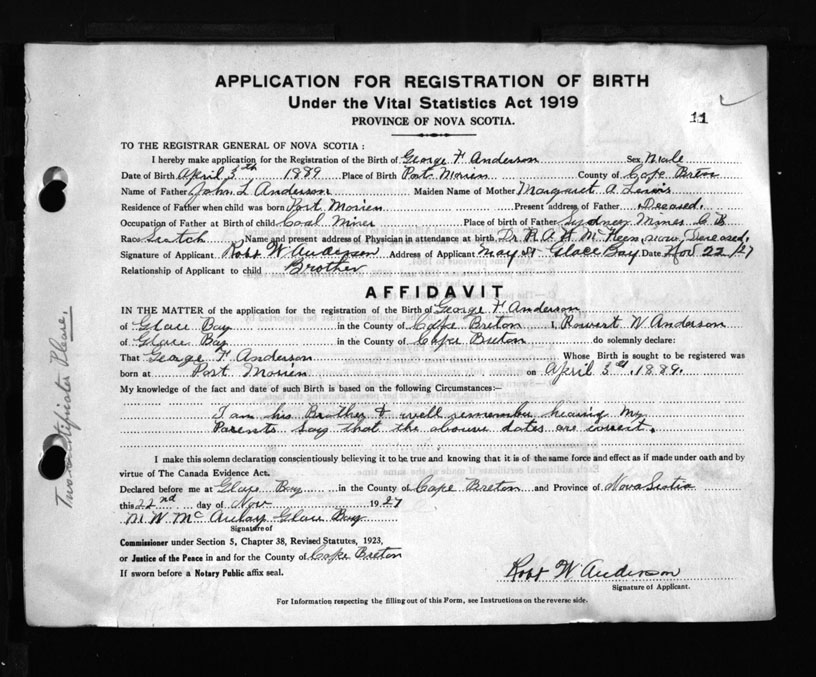 APPLICATION FOR REGISTRATION OF BIRTH
Under the Vital Statistics Act 1919
PROVINCE OF NOVA SCOTIA.
11
TO THE REGISTRAR GENERAL OF NOVA SCOTIA:
I hereby make application for the Registration of the Birth of George F. Anderson Sex Male
Date of Birth April 3th 1889 Place of Birth Port Morien County of Cape Breton
Name of Father John L Anderson Maiden Name of Mother Margaret A. Lewis
Residence of Father when child was born Port Morien Present address of Father Diceased.
Occupation of Father at Birth of child Coal Miner Place of birth of Father Sydney Mines C B
Race Scotch Name and present address of Physician in attendance at birth Dr R. A. H. McKeen now Deceased.
Signature of Applicant Robt W. Anderson Address of Applicant May St Glace Bay Date Nov 22/27
Relationship of Applicant to child Brother
AFFIDAVIT
IN THE MATTER of the application for the registration of the Birth of George F. Anderson
of Glace Bay in the County of Cape Breton I, Rowert W. Anderson
of Glace Bay in the County of Cape Breton do solemnly declare:
That George F. Anderson Whose Birth is sought to be registered was
born at Port Morien on April 3rd, 1889.
My knowledge of the fact and date of such Birth is based on the following Circumstances:—
I am his Brother & well remember hearing my
Parents say that the above dates are correct.
I make this solemn declaration conscientiously believing it to be true and knowing that it is of the same force and effect as if made under oath and by
virtue of The Canada Evidence Act.
Declared before me at Glace Bay in the County of Cape Breton and Province of Nova Scotia
this 22nd day of Nov 1927
M. W. McAulay Glace Bay
Signature of
Commissioner under Section 5, Chapter 38, Revised Statutes, 1923,
or Justice of the Peace in and for the County of Cape Breton
If sworn before a Notary Public affix seal.
Robt W. Anderson
Signature of Applicant.
For Information respecting the filling out of this Form, see Instructions on the reverse side.
Two Certificates Please.